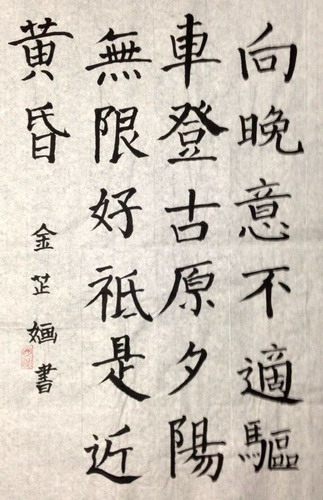 向晚意不適驅
車登古原夕陽
無限好祗是近
黃昏
金芷㛹書